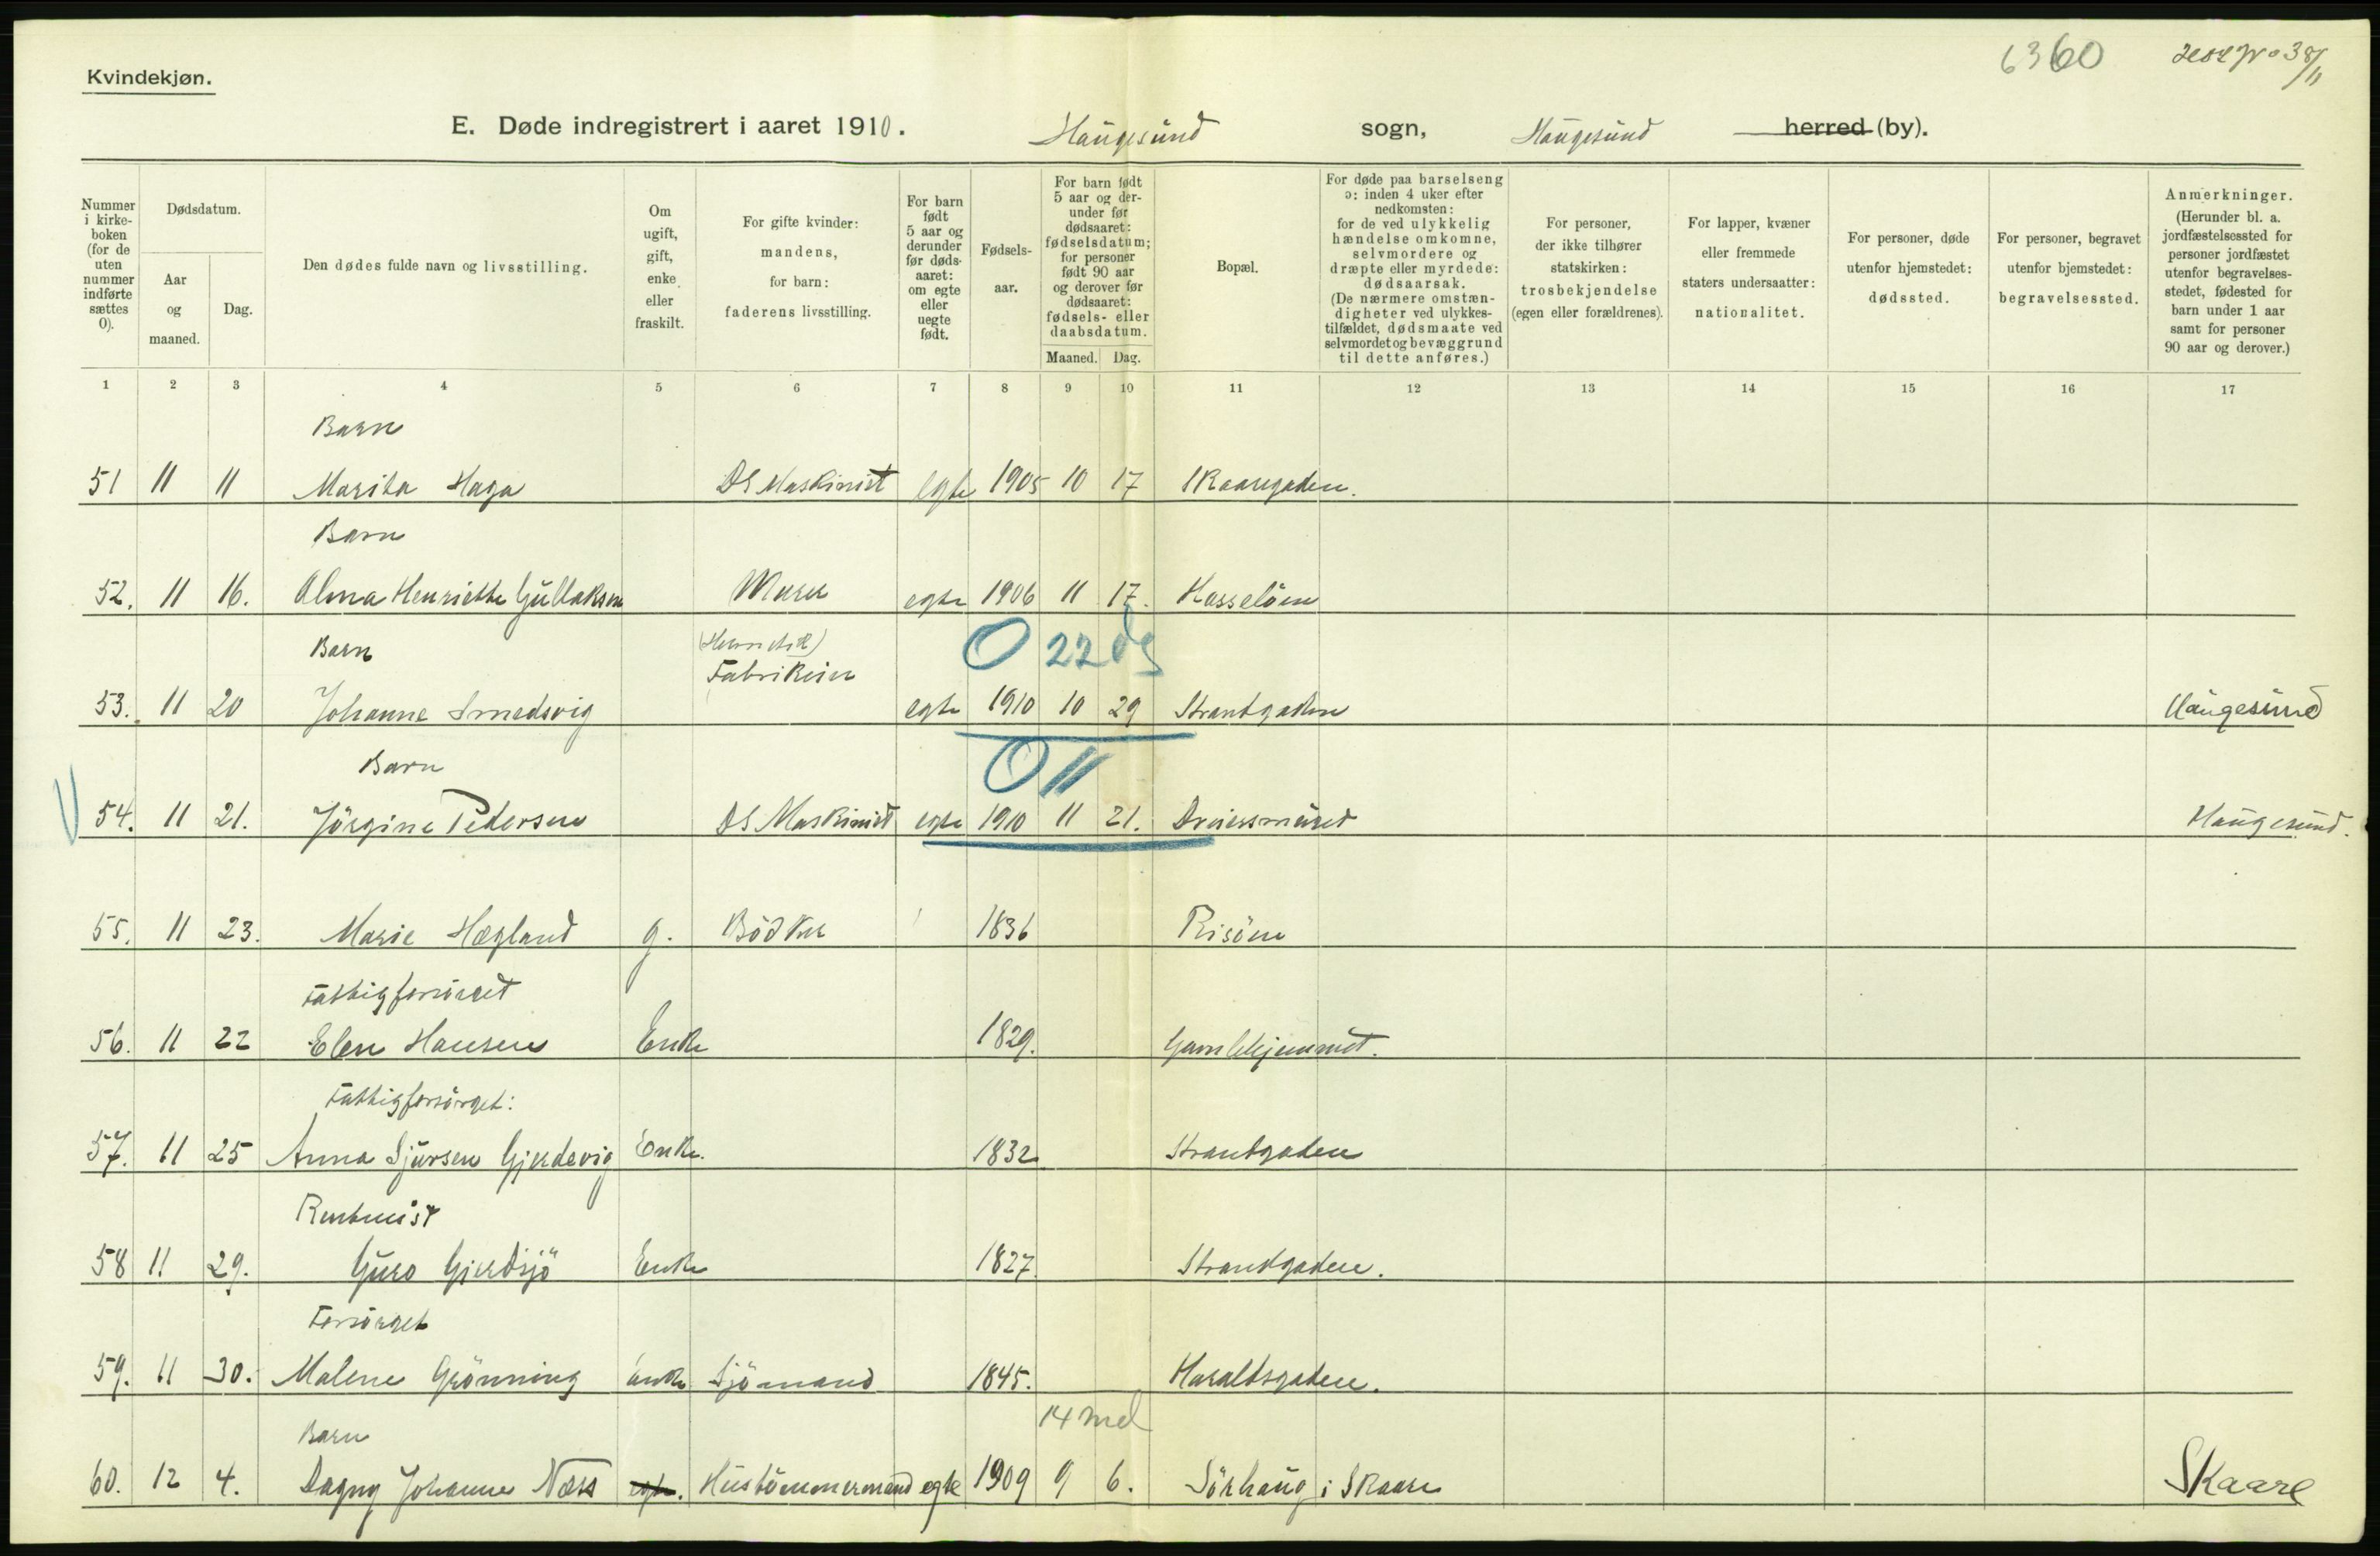 6360
Kvindekjøn.
E. Døde indregistrert i aaret 1910. Haugesund sogn, Haugesund herred (by).
Nummer i kirke-boken (for de uten nummer indførte sættes 0).
Dødsdatum.
Aar og maaned.
Dag.
Den dødes fulde navn og livsstilling.
Om ugift, gift, enke eller fraskilt.
For gifte kvinder: mandens, for barn: faderens livsstilling.
For barn født 5 aar og derunder før døds-aaret: om egte eller uegte født.
Fødsels-aar.
For barn født 5 aar og der-under før dødsaaret: fødselsdatum; for personer født 90 aar og derover før dødsaaret: fødsels- eller daabsdatum.
Maaned. Dag.
Bopæl.
For døde paa barselseng ɔ: inden 4 uker efter nedkomsten: for de ved ulykkelig hændelse omkomne, selvmordere og dræpte eller myrdede: dødsaarsak. (De nærmere omstæn-digheter ved ulykkes-tilfældet, dødsmaate ved selvmordet og bevæggrund til dette anføres.)
For personer, der ikke tilhører statskirken: trosbekjendelse (egen eller forældrenes).
For lapper, kvæner eller fremmede staters undersaatter: nationalitet.
For personer, døde utenfor hjemstedet: dødssted.
For personer, begravet utenfor bjemstedet: begravelsessted.
Anmerkninger. (Herunder bl. a. jordfæstelsessted for personer jordfæstet utenfor begravelses-stedet, fødested for barn under 1 aar samt for personer 90 aar og derover.)
1 2 3 4 5 6 7 8 9 10 11 12 13 14 15 16 17
Barn
51 11 11 Marita Haga DS Maskinist egte 1905 10 17 Skaaregaden.
Barn
52. 11 16. Alma Henriette Gullaksen Murer egte 1906 11 17. Hasseløen
Barn (Hermetik)
0 22 dg
Fabrikeier
53. 11 20 Johanne Smedsvig egte 1910 10 29 Strandgaden Haugesund
Barn
0 11
54. 11 21. Jörgine Pedersen DS Maskinist egte 1910 11 21. Haugesund.
55. 11 23. Marie Hægland g. Bödker 1836 Risöen
Fattigforsörget
56. 11 22 Elen Hansen Enke 1829. Gamlehjemmet.
Fattigforsörget:
57. 11 25 Anna Sjursen Gjerdevig Enke. 1832. Strandgaden
58 11 29. Guro Gjerdsjö Enke 1827. Strandgaden.
Forsörget
59. 11 30. Malene Grönning Enke Sjömand 1845. Haraldsgaden.
14 md
Barn
60. 12 4. Dagny Johanne Næss egte. Hustömmermand egte 1909 9 6. Sörhaug i Skaare Skaare